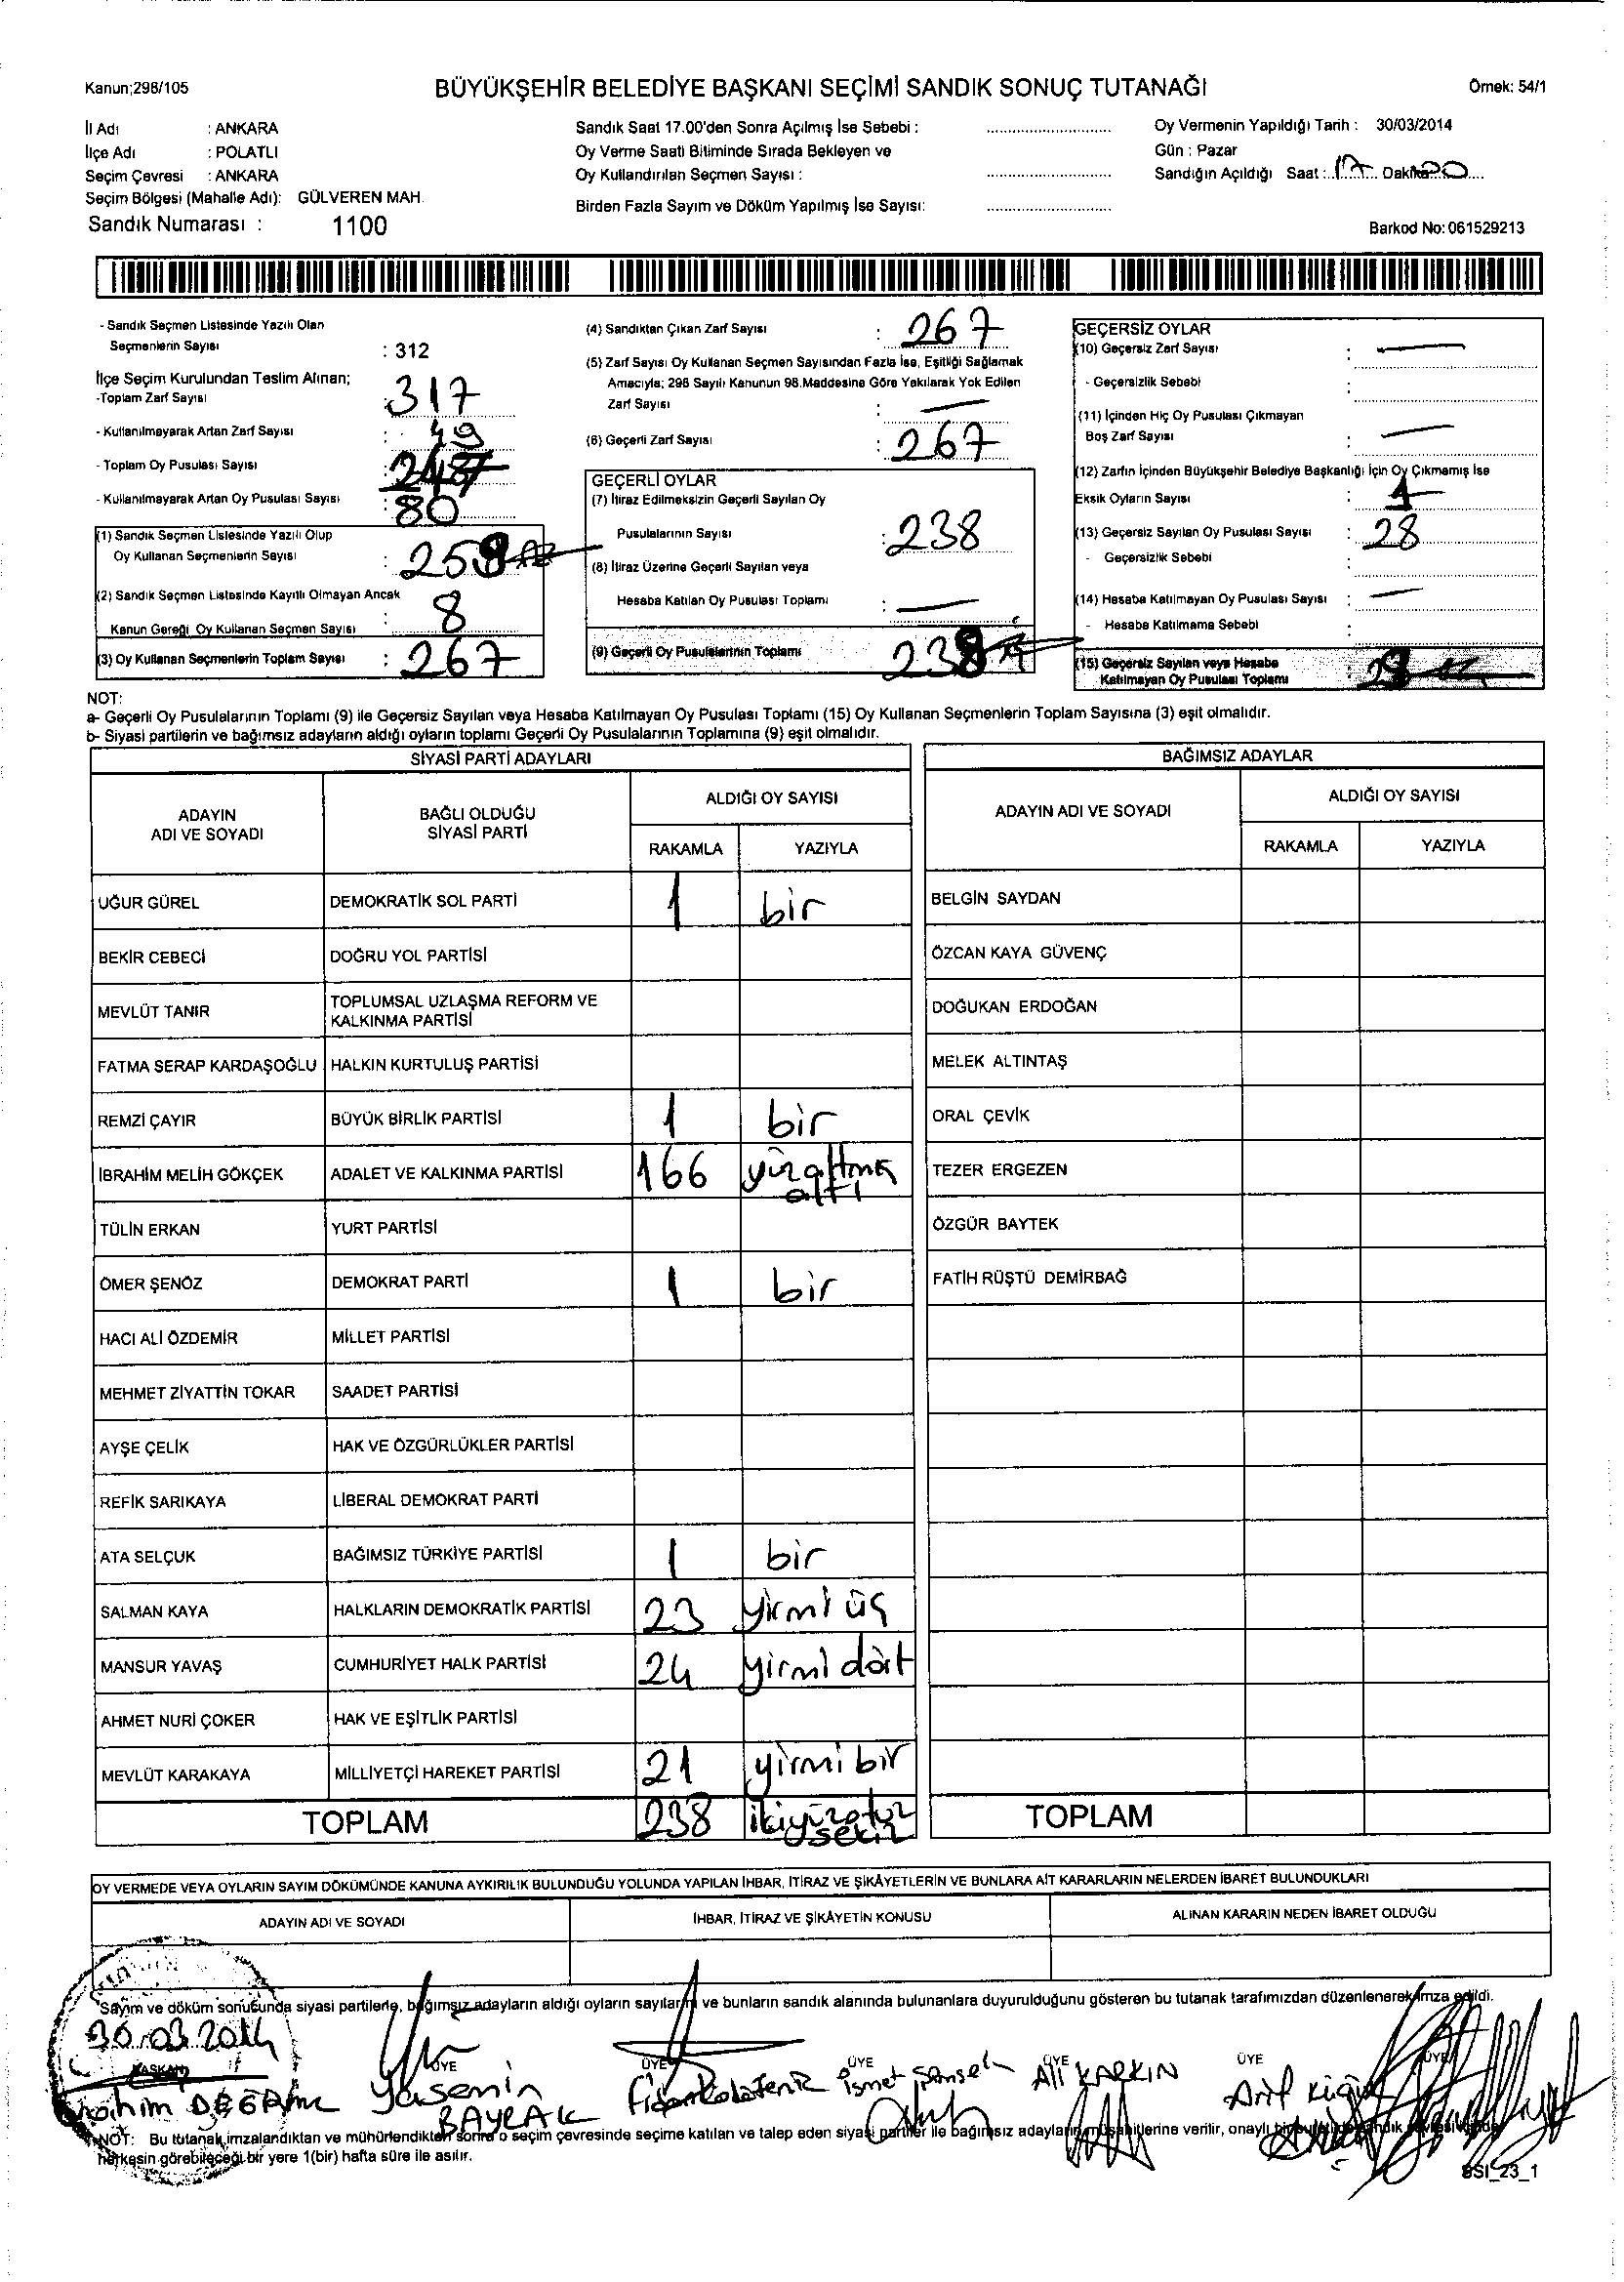 Kanun;298/105
BÜYÜKŞEHİR BELEDİYE BAŞKANI SEÇİMİ SANDIK SONUÇ TUTANAĞI
Örnek: 54/1
İl Adı : ANKARA
İlçe Adı : POLATLI
Seçim Çevresi : ANKARA
Seçim Bölgesi (Mahalle Adı): GÜLVEREN MAH.
Sandık Numarası : 1100
Sandık Saat 17.00'den Sonra Açılmış İse Sebebi :
Oy Verme Saati Bitiminde Sırada Bekleyen ve
Oy Kullandırılan Seçmen Sayısı :
Birden Fazla Sayım ve Döküm Yapılmış İse Sayısı:
Oy Vermenin Yapıldığı Tarih : 30/03/2014
Gün : Pazar
Sandığın Açıldığı Saat : 17 Dakika 20
Barkod No: 061529213
- Sandık Seçmen Listesinde Yazılı Olan
Seçmenlerin Sayısı : 312
İlçe Seçim Kurulundan Teslim Alınan;
-Toplam Zarf Sayısı : 317
- Kullanılmayarak Artan Zarf Sayısı : 49
- Toplam Oy Pusulası Sayısı :
- Kullanılmayarak Artan Oy Pusulası Sayısı : 80
(1) Sandık Seçmen Listesinde Yazılı Olup
Oy Kullanan Seçmenlerin Sayısı : 259
(2) Sandık Seçmen Listesinde Kayıtlı Olmayan Ancak
Kanun Gereği Oy Kullanan Seçmen Sayısı : 8
(3) Oy Kullanan Seçmenlerin Toplam Sayısı : 267
(4) Sandıktan Çıkan Zarf Sayısı : 267
(5) Zarf Sayısı Oy Kullanan Seçmen Sayısından Fazla İse, Eşitliği Sağlamak
Amacıyla; 298 Sayılı Kanunun 98.Maddesine Göre Yakılarak Yok Edilen
Zarf Sayısı : —
(6) Geçerli Zarf Sayısı : 267
GEÇERLİ OYLAR
(7) İtiraz Edilmeksizin Geçerli Sayılan Oy
Pusulalarının Sayısı : 238
(8) İtiraz Üzerine Geçerli Sayılan veya
Hesaba Katılan Oy Pusulası Toplamı : —
(9) Geçerli Oy Pusulalarının Toplamı 238
GEÇERSİZ OYLAR
(10) Geçersiz Zarf Sayısı : —
- Geçersizlik Sebebi :
(11) İçinden Hiç Oy Pusulası Çıkmayan
Boş Zarf Sayısı : —
(12) Zarfın İçinden Büyükşehir Belediye Başkanlığı İçin Oy Çıkmamış İse
Eksik Oyların Sayısı : 1
(13) Geçersiz Sayılan Oy Pusulası Sayısı : 28
- Geçersizlik Sebebi
(14) Hesaba Katılmayan Oy Pusulası Sayısı : —
- Hesaba Katılmama Sebebi :
(15) Geçersiz Sayılan veya Hesaba
Katılmayan Oy Pusulası Toplamı 29
NOT:
a- Geçerli Oy Pusulalarının Toplamı (9) ile Geçersiz Sayılan veya Hesaba Katılmayan Oy Pusulası Toplamı (15) Oy Kullanan Seçmenlerin Toplam Sayısına (3) eşit olmalıdır.
b- Siyasi partilerin ve bağımsız adayların aldığı oyların toplamı Geçerli Oy Pusulalarının Toplamına (9) eşit olmalıdır.
SİYASİ PARTİ ADAYLARI
ADAYIN ADI VE SOYADI BAĞLI OLDUĞU SİYASİ PARTİ ALDIĞI OY SAYISI
RAKAMLA YAZIYLA
UĞUR GÜREL DEMOKRATİK SOL PARTİ 1 bir
BEKİR CEBECİ DOĞRU YOL PARTİSİ
MEVLÜT TANIR TOPLUMSAL UZLAŞMA REFORM VE KALKINMA PARTİSİ
FATMA SERAP KARDAŞOĞLU HALKIN KURTULUŞ PARTİSİ
REMZİ ÇAYIR BÜYÜK BİRLİK PARTİSİ 1 bir
İBRAHİM MELİH GÖKÇEK ADALET VE KALKINMA PARTİSİ 166 yüzaltmış altı
TÜLİN ERKAN YURT PARTİSİ
ÖMER ŞENÖZ DEMOKRAT PARTİ 1 bir
HACI ALİ ÖZDEMİR MİLLET PARTİSİ
MEHMET ZİYATTİN TOKAR SAADET PARTİSİ
AYŞE ÇELİK HAK VE ÖZGÜRLÜKLER PARTİSİ
REFİK SARIKAYA LİBERAL DEMOKRAT PARTİ
ATA SELÇUK BAĞIMSIZ TÜRKİYE PARTİSİ 1 bir
SALMAN KAYA HALKLARIN DEMOKRATİK PARTİSİ 23 yirmi üç
MANSUR YAVAŞ CUMHURİYET HALK PARTİSİ 24 yirmi dört
AHMET NURİ ÇOKER HAK VE EŞİTLİK PARTİSİ
MEVLÜT KARAKAYA MİLLİYETÇİ HAREKET PARTİSİ 21 yirmi bir
TOPLAM 238 ikiyüzotuz sekiz
BAĞIMSIZ ADAYLAR
ADAYIN ADI VE SOYADI ALDIĞI OY SAYISI
RAKAMLA YAZIYLA
BELGİN SAYDAN
ÖZCAN KAYA GÜVENÇ
DOĞUKAN ERDOĞAN
MELEK ALTINTAŞ
ORAL ÇEVİK
TEZER ERGEZEN
ÖZGÜR BAYTEK
FATİH RÜŞTÜ DEMİRBAĞ
TOPLAM
OY VERMEDE VEYA OYLARIN SAYIM DÖKÜMÜNDE KANUNA AYKIRILIK BULUNDUĞU YOLUNDA YAPILAN İHBAR, İTİRAZ VE ŞİKÂYETLERİN VE BUNLARA AİT KARARLARIN NELERDEN İBARET BULUNDUKLARI
ADAYIN ADI VE SOYADI İHBAR, İTİRAZ VE ŞİKÂYETİN KONUSU ALINAN KARARIN NEDEN İBARET OLDUĞU
Sayım ve döküm sonucunda siyasi partilerle, bağımsız adayların aldığı oyların sayılarını ve bunların sandık alanında bulunanlara duyurulduğunu gösteren bu tutanak tarafımızdan düzenlenerek imza edildi.
30.03.2014
BAŞKAN ÜYE ÜYE ÜYE ÜYE ÜYE ÜYE
Yasemin BAYRAK
İsmet
Ali KARKIN
Arif
NOT: Bu tutanak imzalandıktan ve mühürlendikten sonra o seçim çevresinde seçime katılan ve talep eden siyasi partiler ile bağımsız adayların müşahitlerine verilir, onaylı bir
herkesin görebileceği bir yere 1(bir) hafta süre ile asılır.
SSI_23_1